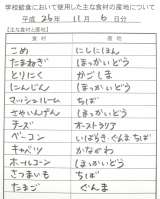 学校給食において使用した主な食材の産地について
平成 26年 11月 6日分
【主な食材と産地】
食材 産地
こめ にしにほん
たまねぎ ほっかいどう
とりにく かごしま
にんじん ほっかいどう
マッシュルーム ちば
さやいんげん ほっかいどう
チーズ オーストラリア
ベーコン いばらき・ぐんま ちば
キャベツ かながわ
ホールコーン ほっかいどう
さつまいも ちば
たまご ぐんま